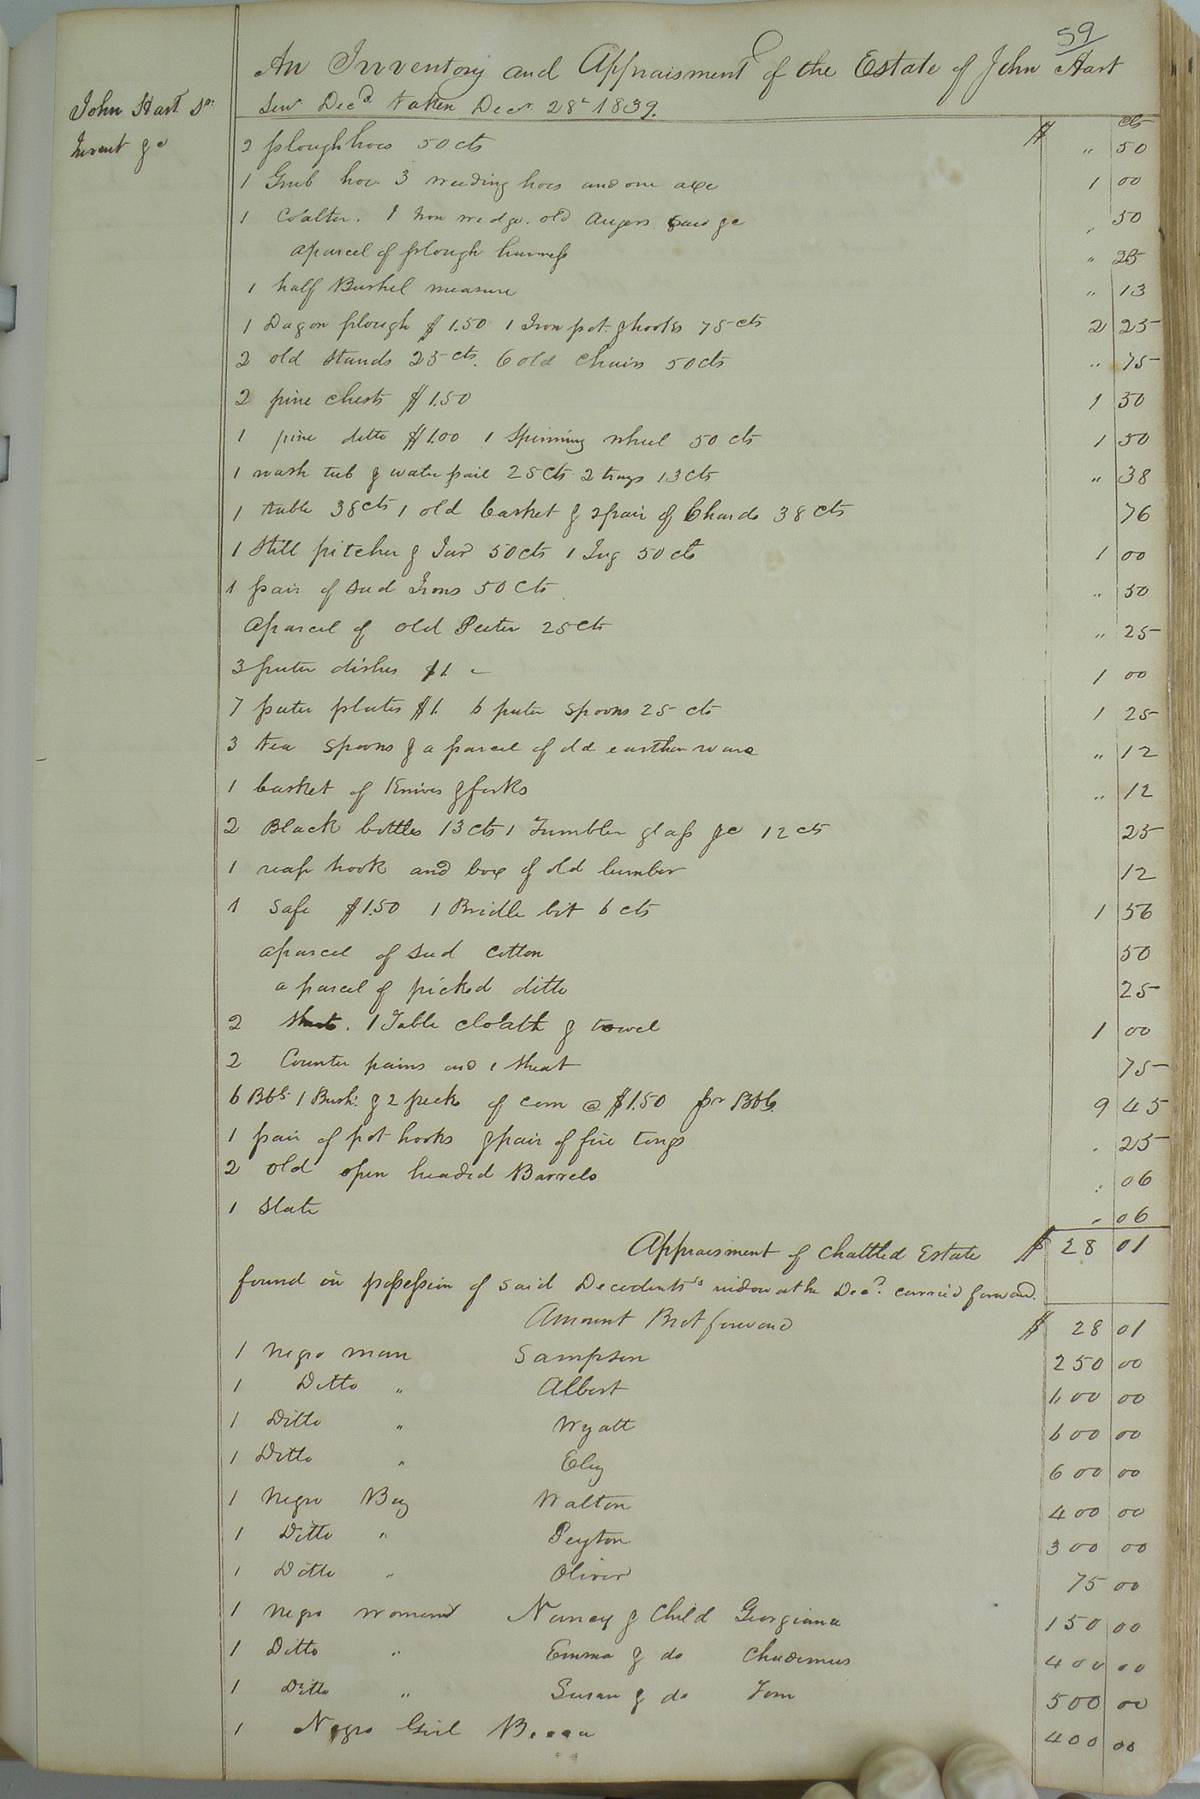 59
An Inventory and Appraisment of the Estate of John Hart
Senr Decd taken Decr 28th 1839.
John Hart Sr
Invent &c
$ cts
2 ploughhoes 50 cts " 50
1 Grub hoe 3 weeding hoes and one axe 1 00
1 Coalter. 1 Iron wedge. old Augers Saw &c " 50
a parcel of plough harness " 25
1 half Bushel measure " 13
1 Dagon plough $1.50 1 Iron pot & hooks 75 cts 2 25
2 old Stands 25 cts. 6 old Chairs 50 cts " 75
2 pine chests $1.50 1 50
1 pine ditto $1.00 1 Spinning wheel 50 cts 1 50
1 wash tub & water pail 25 cts 2 trays 13 cts " 38
1 table 38 cts 1 old basket & 2 pair of Chards 38 cts 76
1 Still pitcher & Jar 50 cts 1 Jug 50 cts 1 00
1 pair of Sad Irons 50 cts " 50
A parcel of old Peuter 25 cts " 25
3 puter dishes $1. – 1 00
7 puter plates $1. 6 puter Spoons 25 cts 1 25
3 tea Spoons & a parcel of old earthen ware " 12
1 basket of Knives & forks " 12
2 Black bottles 13 cts 1 Tumbler glass &c 12 cts 25
1 reap hook and box of old lumber 12
1 Safe $1.50 1 Bridle bit 6 cts 1 56
a parcel of Sead Cotton 50
a parcel of picked ditto 25
2 . 1 Table cloath & towel 1 00
2 Counter pains and 1 Sheat 75
6 Bbls 1 Bush. & 2 pecks of corn @ $1.50 pr Bbl. 9 45
1 pair of pot hooks & pair of fire tongs . 25
2 old open headed Barrels : 06
1 Slate " 06
Appraisment of Chattled Estate $ 28 01
found in possession of said Decedents widow at his Decd. carried forward.
Amount Brot forward $ 28 01
1 Negro man Sampson 250 00
1 Ditto " Albert 600 00
1 Ditto " Wyatt 600 00
1 Ditto " Eley 600 00
1 Negro Boy Walton 400 00
1 Ditto " Peyton 300 00
1 Ditto " Oliver 75 00
1 Negro womend Nancy & Child Georgiana 150 00
1 Ditto " Emma & do 400 00
1 Ditto " Susan & do Tom 500 00
1 Negro Girl 400 00